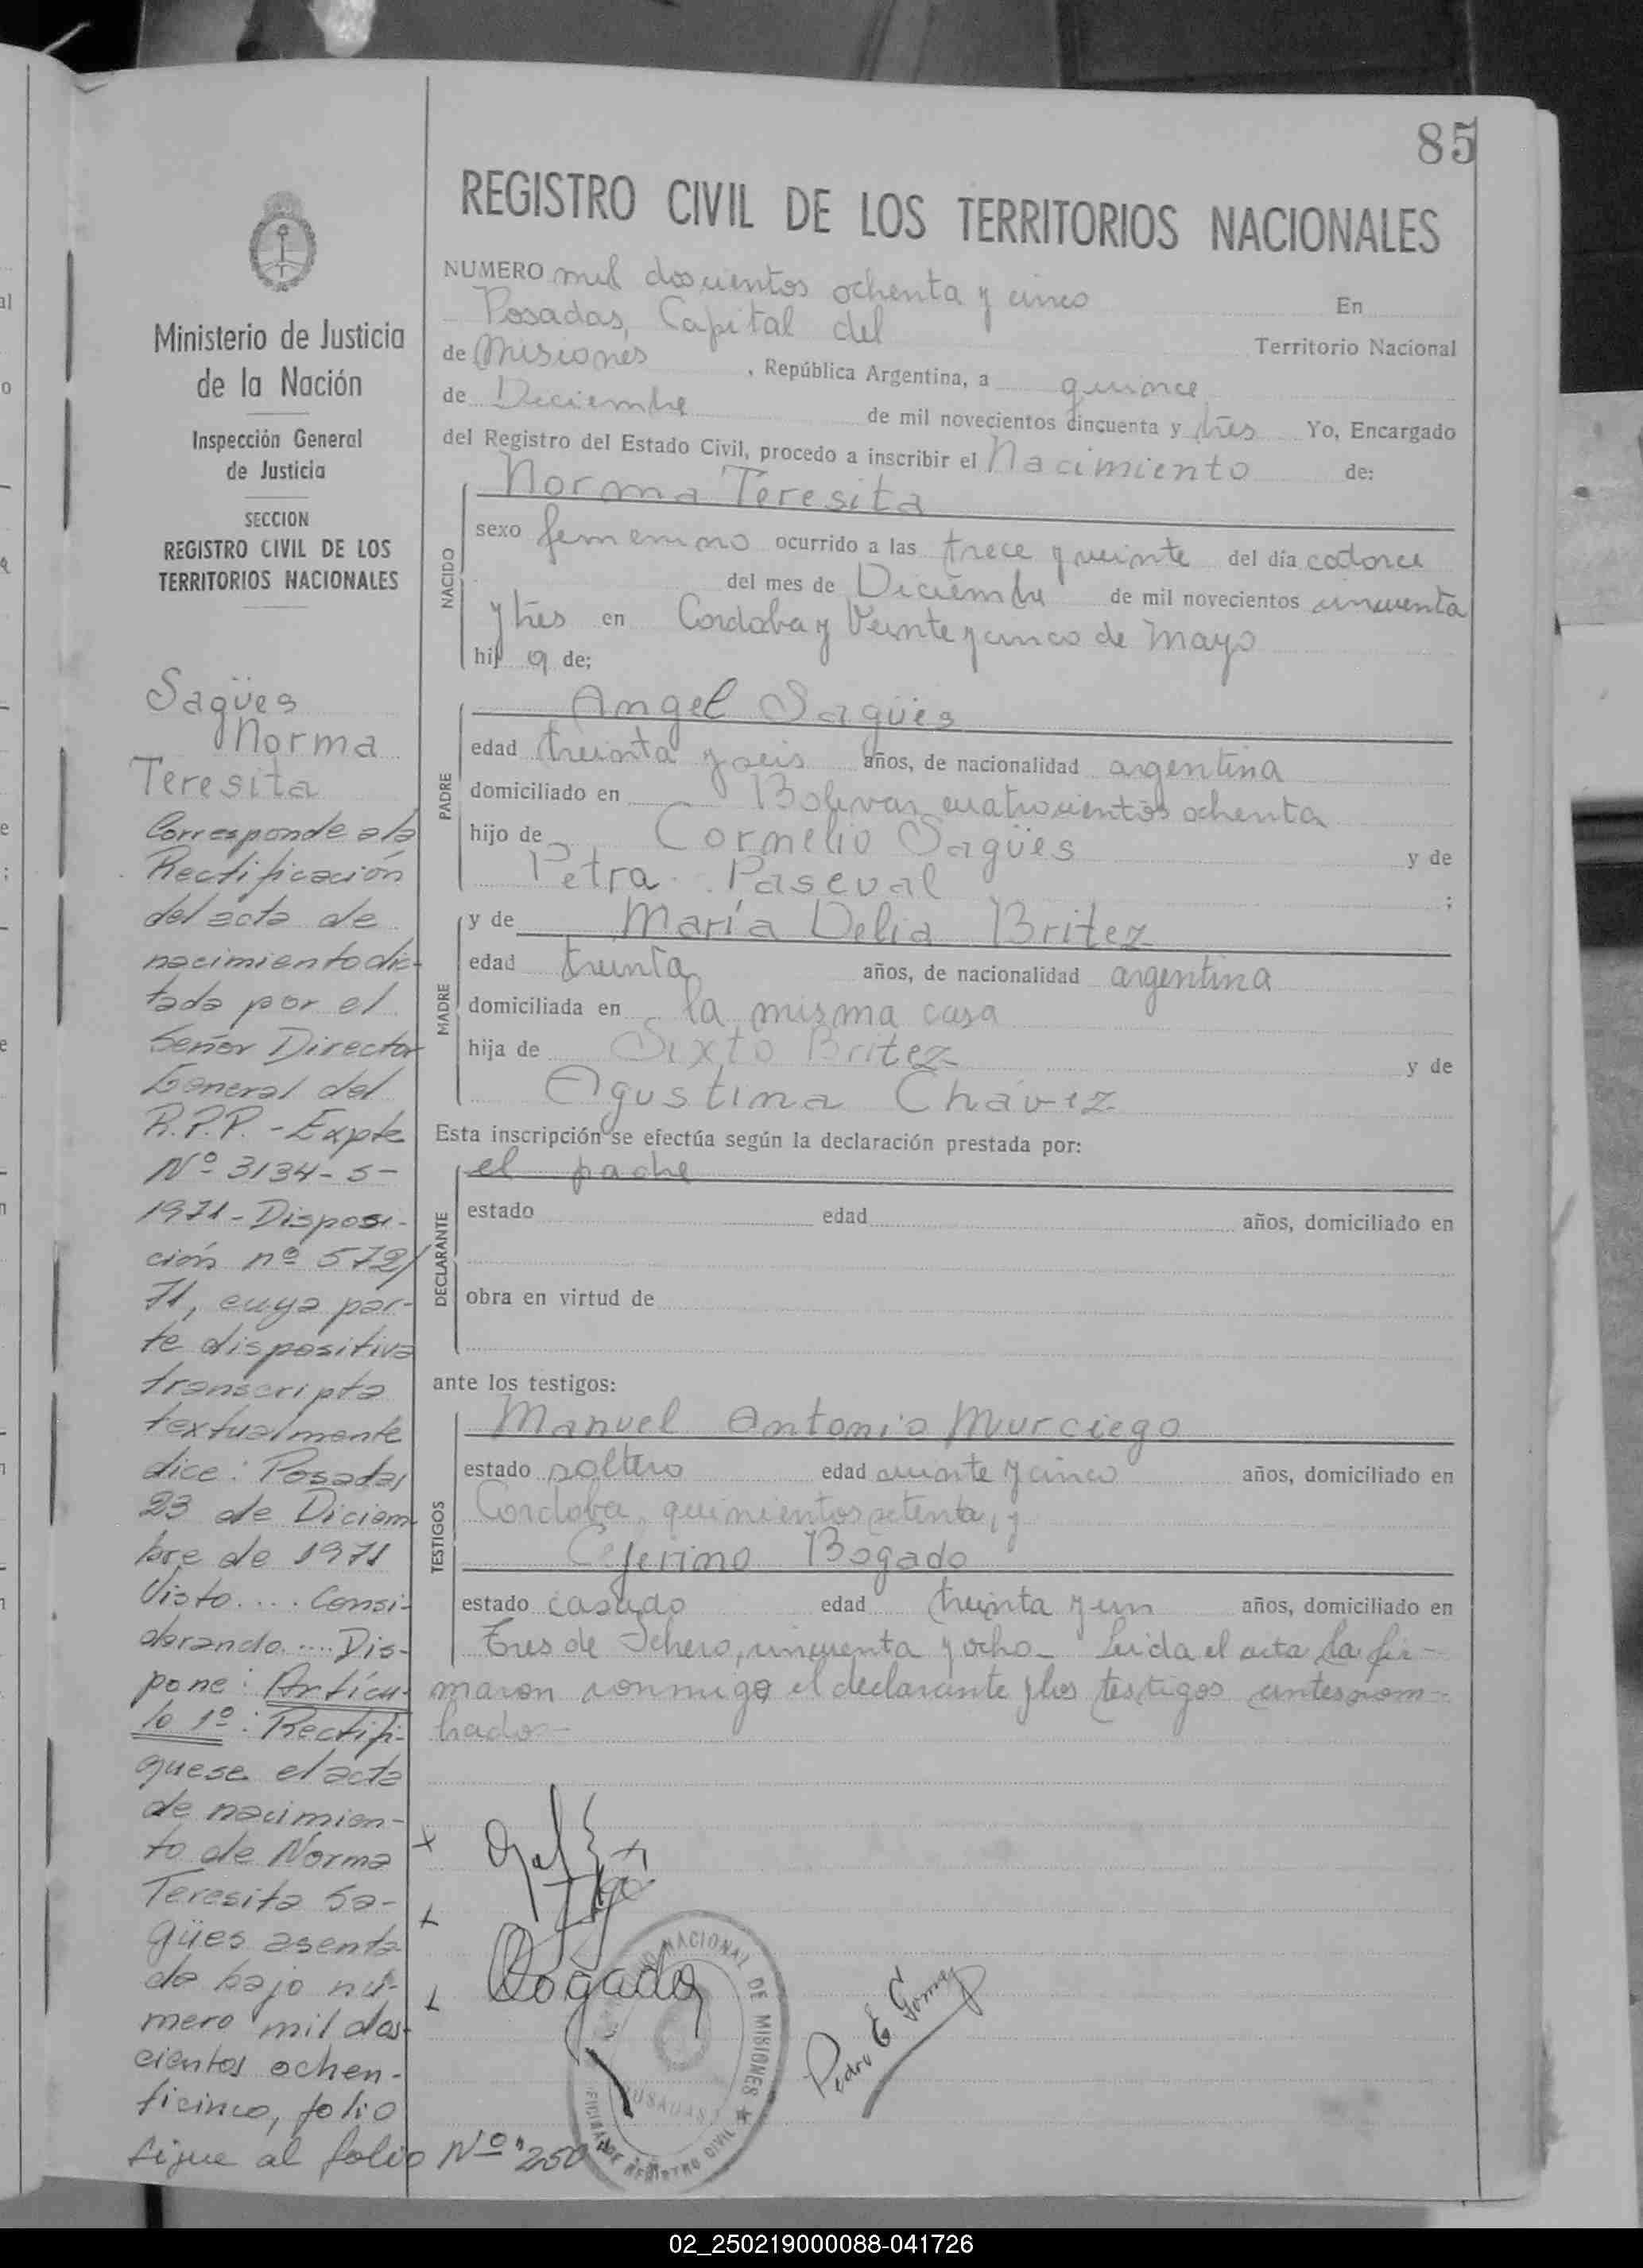 85
REGISTRO CIVIL DE LOS TERRITORIOS NACIONALES
NUMERO mil doscientos ochenta y cinco En
Posadas, Capital del Territorio Nacional
de Misiones , República Argentina, a quince
de Diciembre de mil novecientos cincuenta y tres Yo, Encargado
del Registro del Estado Civil, procedo a inscribir el Nacimiento de:
NACIDO
Norma Teresita
sexo femenino ocurrido a las trece y veinte del día catorce
del mes de Diciembre de mil novecientos cincuenta
y tres en Cordoba y Veinte y cinco de Mayo
hij a de;
PADRE
Angel Sagües
edad treinta y seis años, de nacionalidad argentina
domiciliado en Bolivar cuatrocientos ochenta
hijo de Cornelio Sagües y de
Petra Pascual ;
MADRE
y de María Delia Britez
edad treinta años, de nacionalidad argentina
domiciliada en la misma casa
hija de Sixto Britez y de
Agustina Chávez
Esta inscripción se efectúa según la declaración prestada por:
DECLARANTE
el padre
estado edad años, domiciliado en
obra en virtud de
ante los testigos:
TESTIGOS
Manuel Antonio Murciego
estado soltero edad veinte y cinco años, domiciliado en
Cordoba, quinientos setenta, y
Ceferino Bogado
estado casado edad treinta y un años, domiciliado en
Tres de Febrero, cincuenta y ocho_ Leida el acta la fir-
maron conmigo el declarante y los testigos antes nom-
brados-
Bogado
Pedro E Gomez
NACIONAL DE MISIONES
POSADAS
OFICINA DE REGISTRO CIVIL
Ministerio de Justicia
de la Nación
Inspección General
de Justicia
SECCION
REGISTRO CIVIL DE LOS
TERRITORIOS NACIONALES
Sagües
Norma
Teresita
Corresponde a la
Rectificación
del acta de
nacimiento dic-
tada por el
Señor Director
General del
R.P.P. - Expte
Nº 3134-S-
1971 - Disposi-
ción nº 572/
71, cuya par-
te dispositiva
transcripta
textualmente
dice: Posadas
23 de Diciem
bre de 1971
Visto.... Consi-
derando.... Dis-
pone: Artícu-
lo 1º: Rectifi-
quese el acta
de nacimien-
to de Norma
Teresita Sa-
gües asenta
da bajo nú-
mero mil dos-
cientos ochen-
ticinco, folio
Sigue al folio Nº "250"
02_250219000088-041726